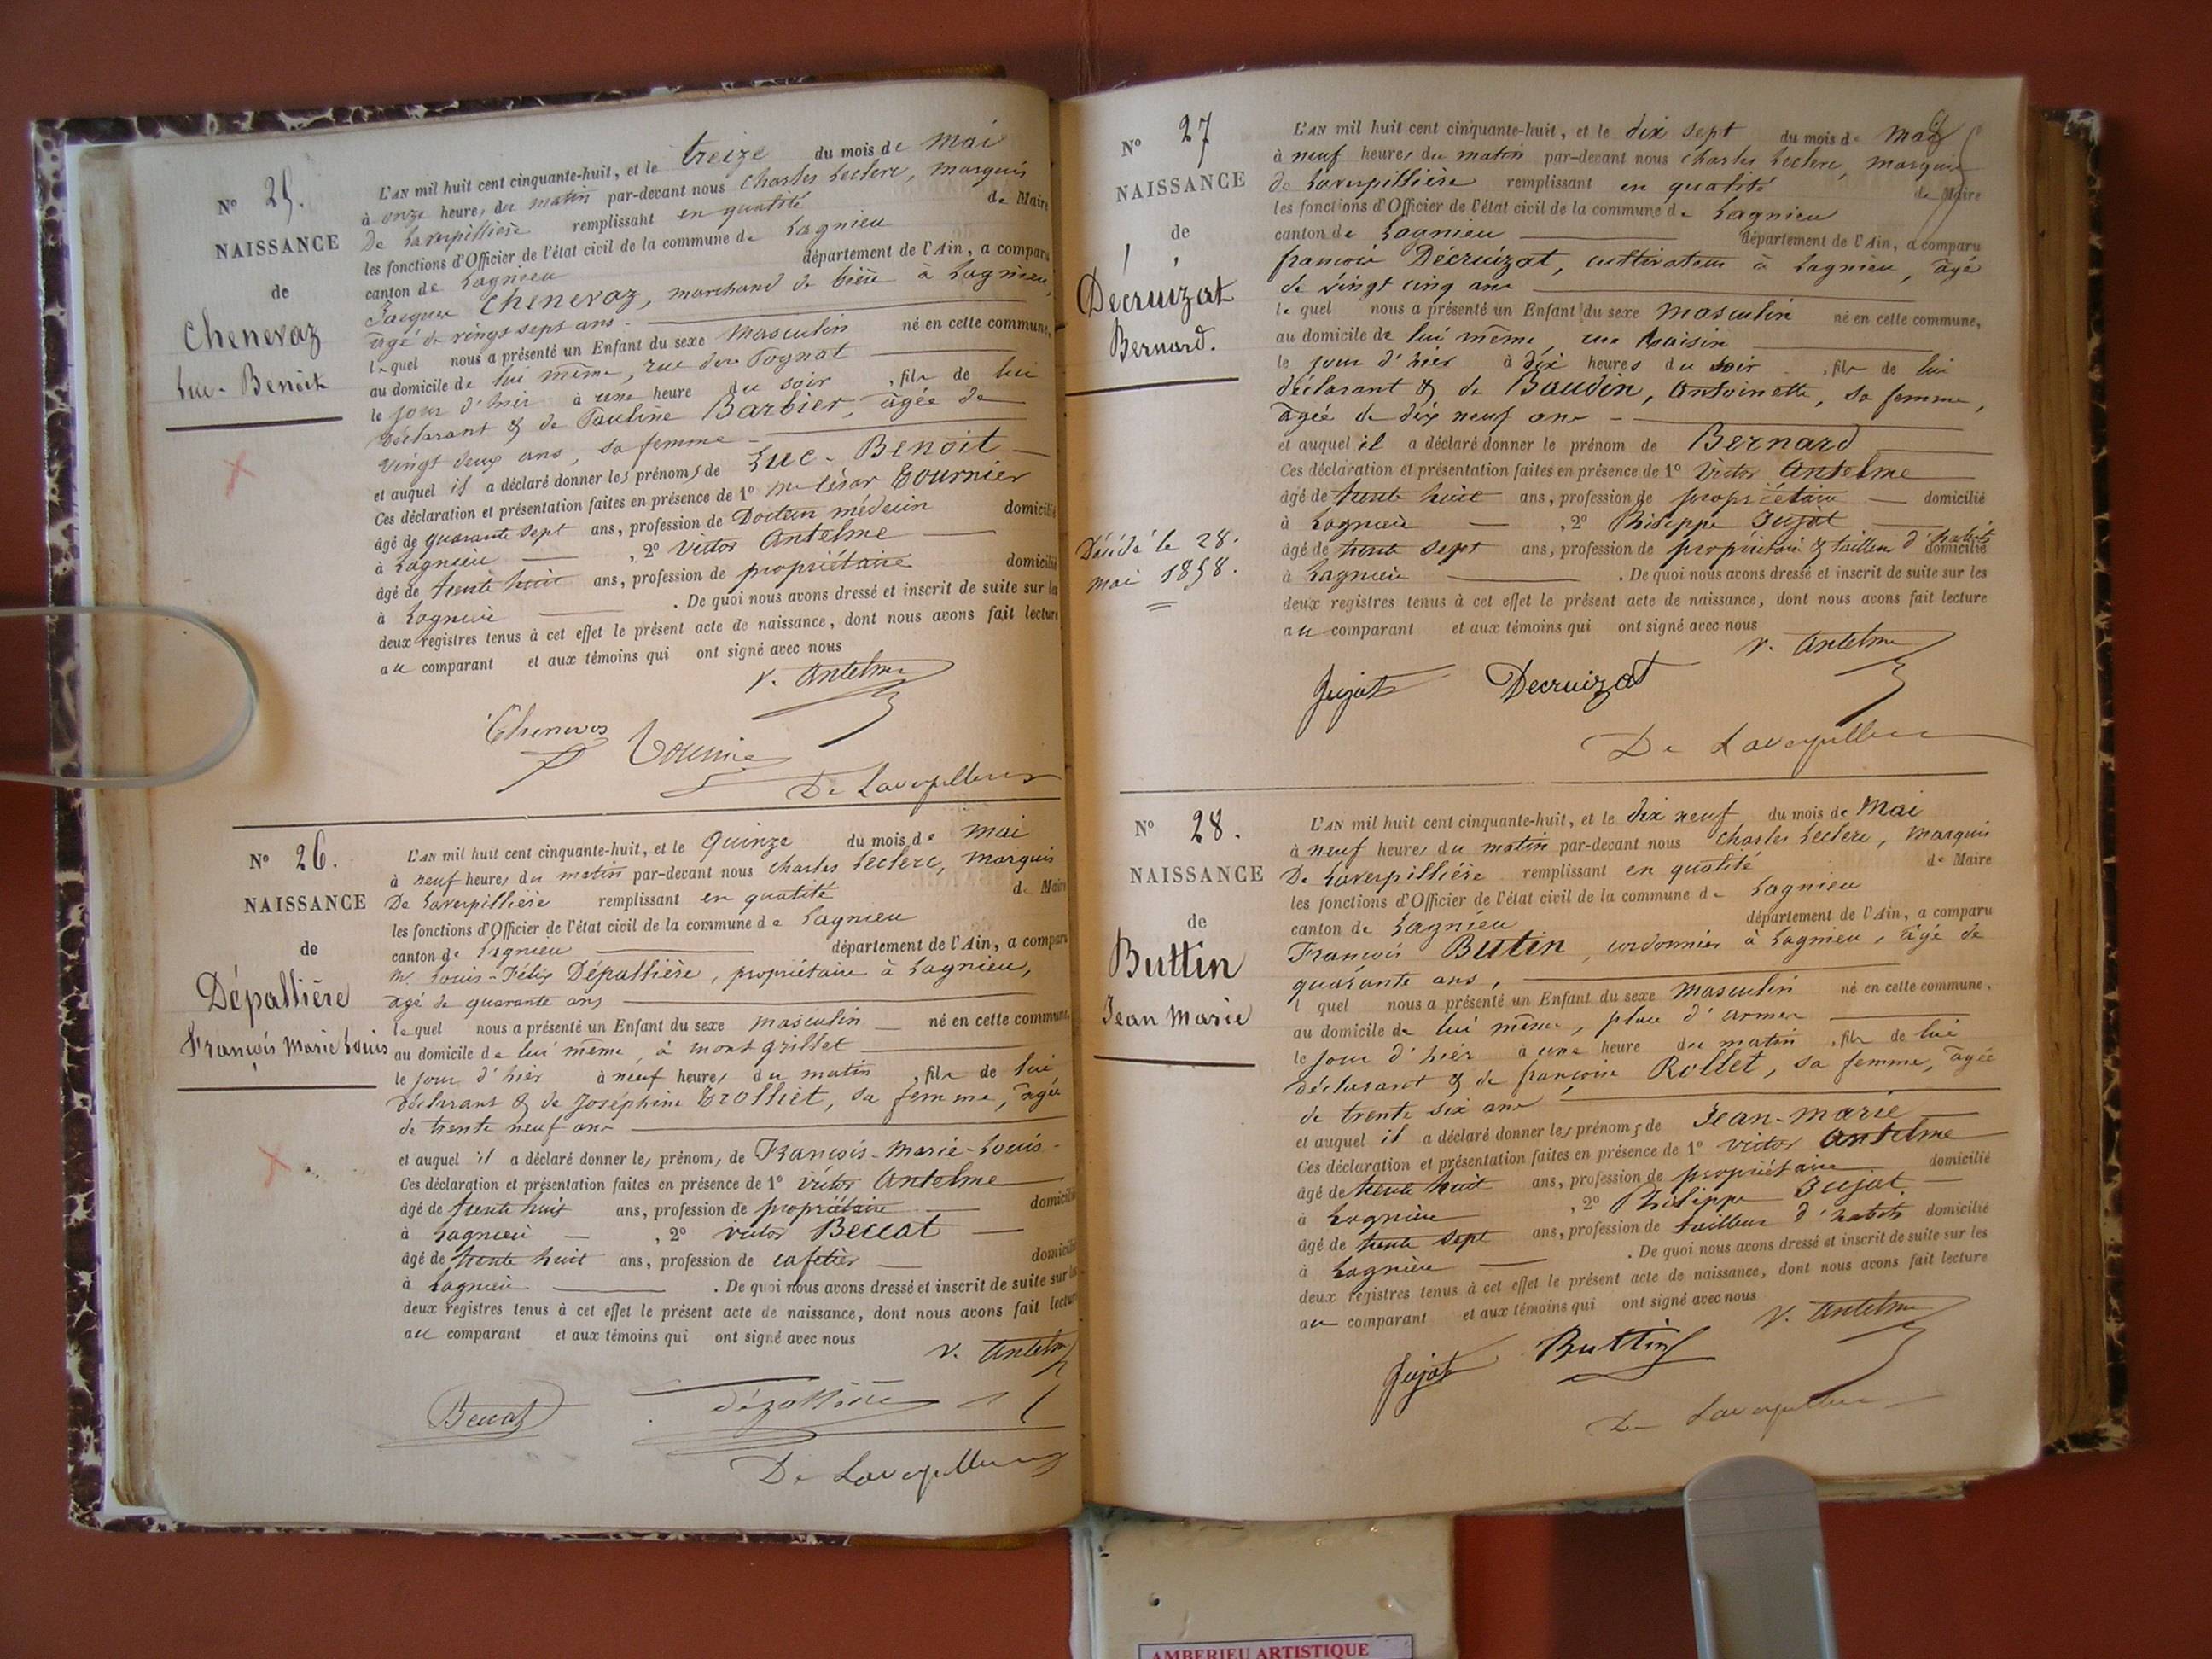 N° 25.
NAISSANCE
de
Chenevaz
Luc-Benoit
L'AN mil huit cent cinquante-huit, et le treize du mois de mai
à onze heures du matin par-devant nous Charles Leclerc, marquis
De Laverpillière remplissant en qualité de Maire
les fonctions d'Officier de l'état civil de la commune de Lagnieu
canton de Lagnieu département de l'Ain, a comparu
Jacques Chenevaz, marchand de bière à Lagnieu,
âgé de vingt sept ans
lequel nous a présenté un Enfant du sexe masculin né en cette commune,
au domicile de lui même, rue du
le jour d'hier à une heure du soir, fils de lui
déclarant & de Pauline Barbier, âgée de
vingt deux ans, sa femme
et auquel il a déclaré donner les prénoms de Luc-Benoit
Ces déclaration et présentation faites en présence de 1° Mr César Tournier
âgé de quarante sept ans, profession de Docteur médecin domicilié
à Lagnieu, 2° Victor Antelme
âgé de trente huit ans, profession de propriétaire domicilié
à Lagnieu. De quoi nous avons dressé et inscrit de suite sur les
deux registres tenus à cet effet le présent acte de naissance, dont nous avons fait lecture
au comparant et aux témoins qui ont signé avec nous
V. Antelme
Chenevas Tournier
De Laverpilliere
N° 26.
NAISSANCE
de
Dépallière
François Marie Louis
L'AN mil huit cent cinquante-huit, et le quinze du mois de mai
à neuf heures du matin par-devant nous Charles Leclerc, marquis
De Laverpillière remplissant en qualité de Maire
les fonctions d'Officier de l'état civil de la commune de Lagnieu
canton de Lagnieu département de l'Ain, a comparu
M. Louis-Félix Dépallière, propriétaire à Lagnieu,
âgé de quarante ans
lequel nous a présenté un Enfant du sexe masculin né en cette commune,
au domicile de lui même, à mont grillet
le jour d'hier à neuf heures du matin, fils de lui
déclarant & de Joséphine Trolliet, sa femme, âgée
de trente neuf ans
et auquel il a déclaré donner les prénoms de François-Marie-Louis-
Ces déclaration et présentation faites en présence de 1° Victor Antelme
âgé de trente huit ans, profession de propriétaire domicilié
à Lagnieu, 2° Victor Beccat
âgé de trente huit ans, profession de cafetier domicilié
à Lagnieu. De quoi nous avons dressé et inscrit de suite sur les
deux registres tenus à cet effet le présent acte de naissance, dont nous avons fait lecture
au comparant et aux témoins qui ont signé avec nous
V. Antelme
Beccat Dépallière
De Laverpilliere
N° 27
NAISSANCE
de
Décruizat
Bernard.
Décédé le 28.
mai 1858.
L'AN mil huit cent cinquante-huit, et le dix sept du mois de mai
à neuf heures du matin par-devant nous Charles Leclerc, marquis
de Laverpillière remplissant en qualité de Maire
les fonctions d'Officier de l'état civil de la commune de Lagnieu
canton de Lagnieu département de l'Ain, a comparu
françois Décruizat, cultivateur à Lagnieu, âgé
de vingt cinq ans
lequel nous a présenté un Enfant du sexe masculin né en cette commune,
au domicile de lui même,
le jour d'hier à dix heures du soir, fils de lui
déclarant & de Baudin, Antoinette, sa femme,
âgée de dix neuf ans
et auquel il a déclaré donner le prénom de Bernard
Ces déclaration et présentation faites en présence de 1° Victor Antelme
âgé de trente huit ans, profession de propriétaire domicilié
à Lagnieu, 2° Philippe Jujat
âgé de trente sept ans, profession de propriétaire & tailleur d'habits domicilié
à Lagnieu. De quoi nous avons dressé et inscrit de suite sur les
deux registres tenus à cet effet le présent acte de naissance, dont nous avons fait lecture
au comparant et aux témoins qui ont signé avec nous
V. Antelme
Jujat Decruizat
De Laverpilliere
N° 28.
NAISSANCE
de
Buttin
Jean Marie
L'AN mil huit cent cinquante-huit, et le dix neuf du mois de Mai
à neuf heures du matin par-devant nous Charles Leclerc, marquis
De Laverpillière remplissant en qualité de Maire
les fonctions d'Officier de l'état civil de la commune de Lagnieu
canton de Lagnieu département de l'Ain, a comparu
François Butin, cordonnier à Lagnieu, âgé de
quarante ans,
lquel nous a présenté un Enfant du sexe masculin né en cette commune,
au domicile de lui même, place d'armes
le jour d'hier à une heure du matin, fils de lui
déclarant & de françoise Rollet, sa femme, âgée
de trente six ans
et auquel il a déclaré donner les prénoms de Jean-marie
Ces déclaration et présentation faites en présence de 1° victor Antelme
âgé de trente huit ans, profession de propriétaire domicilié
à Lagnieu, 2° Philippe Jujat
âgé de trente sept ans, profession de tailleur d'habits domicilié
à Lagnieu. De quoi nous avons dressé et inscrit de suite sur les
deux registres tenus à cet effet le présent acte de naissance, dont nous avons fait lecture
au comparant et aux témoins qui ont signé avec nous
V. Antelme
Jujat Buttin
De Laverpilliere
AMBERIEU ARTISTIQUE